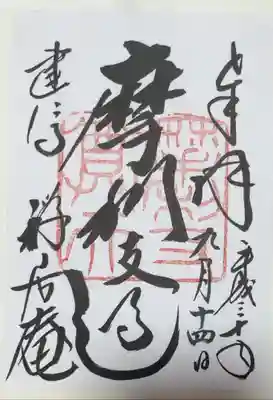 奉拝
平成三十年
九月十四日
摩利支天
建仁寺 禅居庵